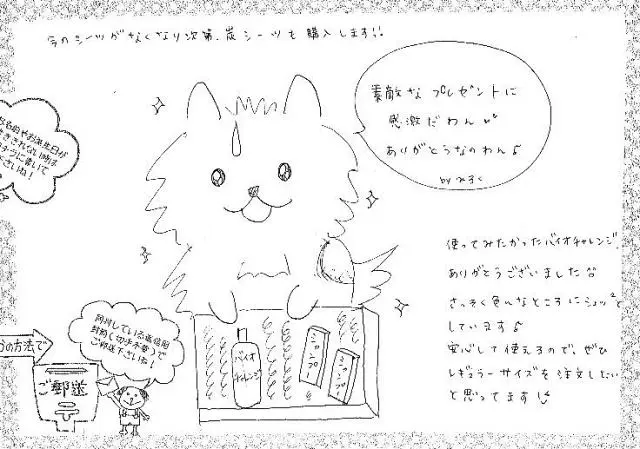 今のシーツがなくなり次第、炭シーツも購入します!!
素敵なプレゼントに
感激だわん
ありがとうなのわん♪
by みるく
お名前やお誕生日が
使ってみたかったバイオチャレンジ
ありがとうございました
さっそく色んなところにシュッと
しています♪
安心して使えるので、ぜひ
レギュラーサイズを注文したい
と思ってます
同封している返信用
封筒(切手不要)で
ご郵送下さいね!
の方法で
ご郵送
バイオ
チャレンジ